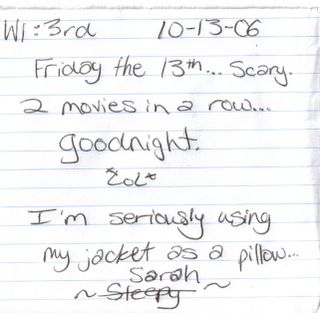 W1:3rd 10-13-06
Friday the 13th... Scary.
2 movies in a row...
goodnight.
*LOL*
I'm seriously using
my jacket as a pillow...
Sarah
~ Sleepy ~